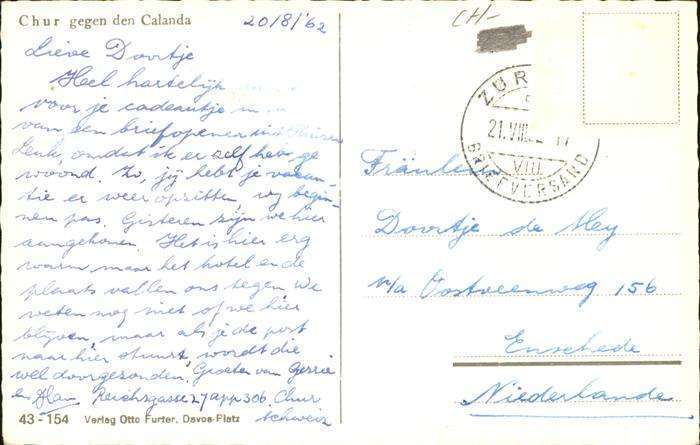 Chur gegen den Calanda
20/8/'62
Lieve Doortje
Heel hartelijk
voor je cadeautje
van een briefopener
Leuk, omdat ik er zelf heb ge
woond. Zo, jij hebt je vacan-
tie er weer opzitten, wij begin-
nen pas. Gisteren zijn we hier
aangekomen. Het is hier erg
warm maar het hotel en de
plaats vallen ons tegen. We
weten nog niet of we hier
blijven, maar als je de post
naar hier stuurt, wordt die
wel doorgezonden. Groeten van Gerrie
en Han Reichsgasse 27 app 306. Chur
Schweiz
43 - 154 Verlag Otto Furter, Davos-Platz
CH-
ZÜR
21.VIII.
VIII
BRIEFVERSAND
Fräulein
Doortje de Mey
p/a Oostveenweg 156
Enschede
Niederlande